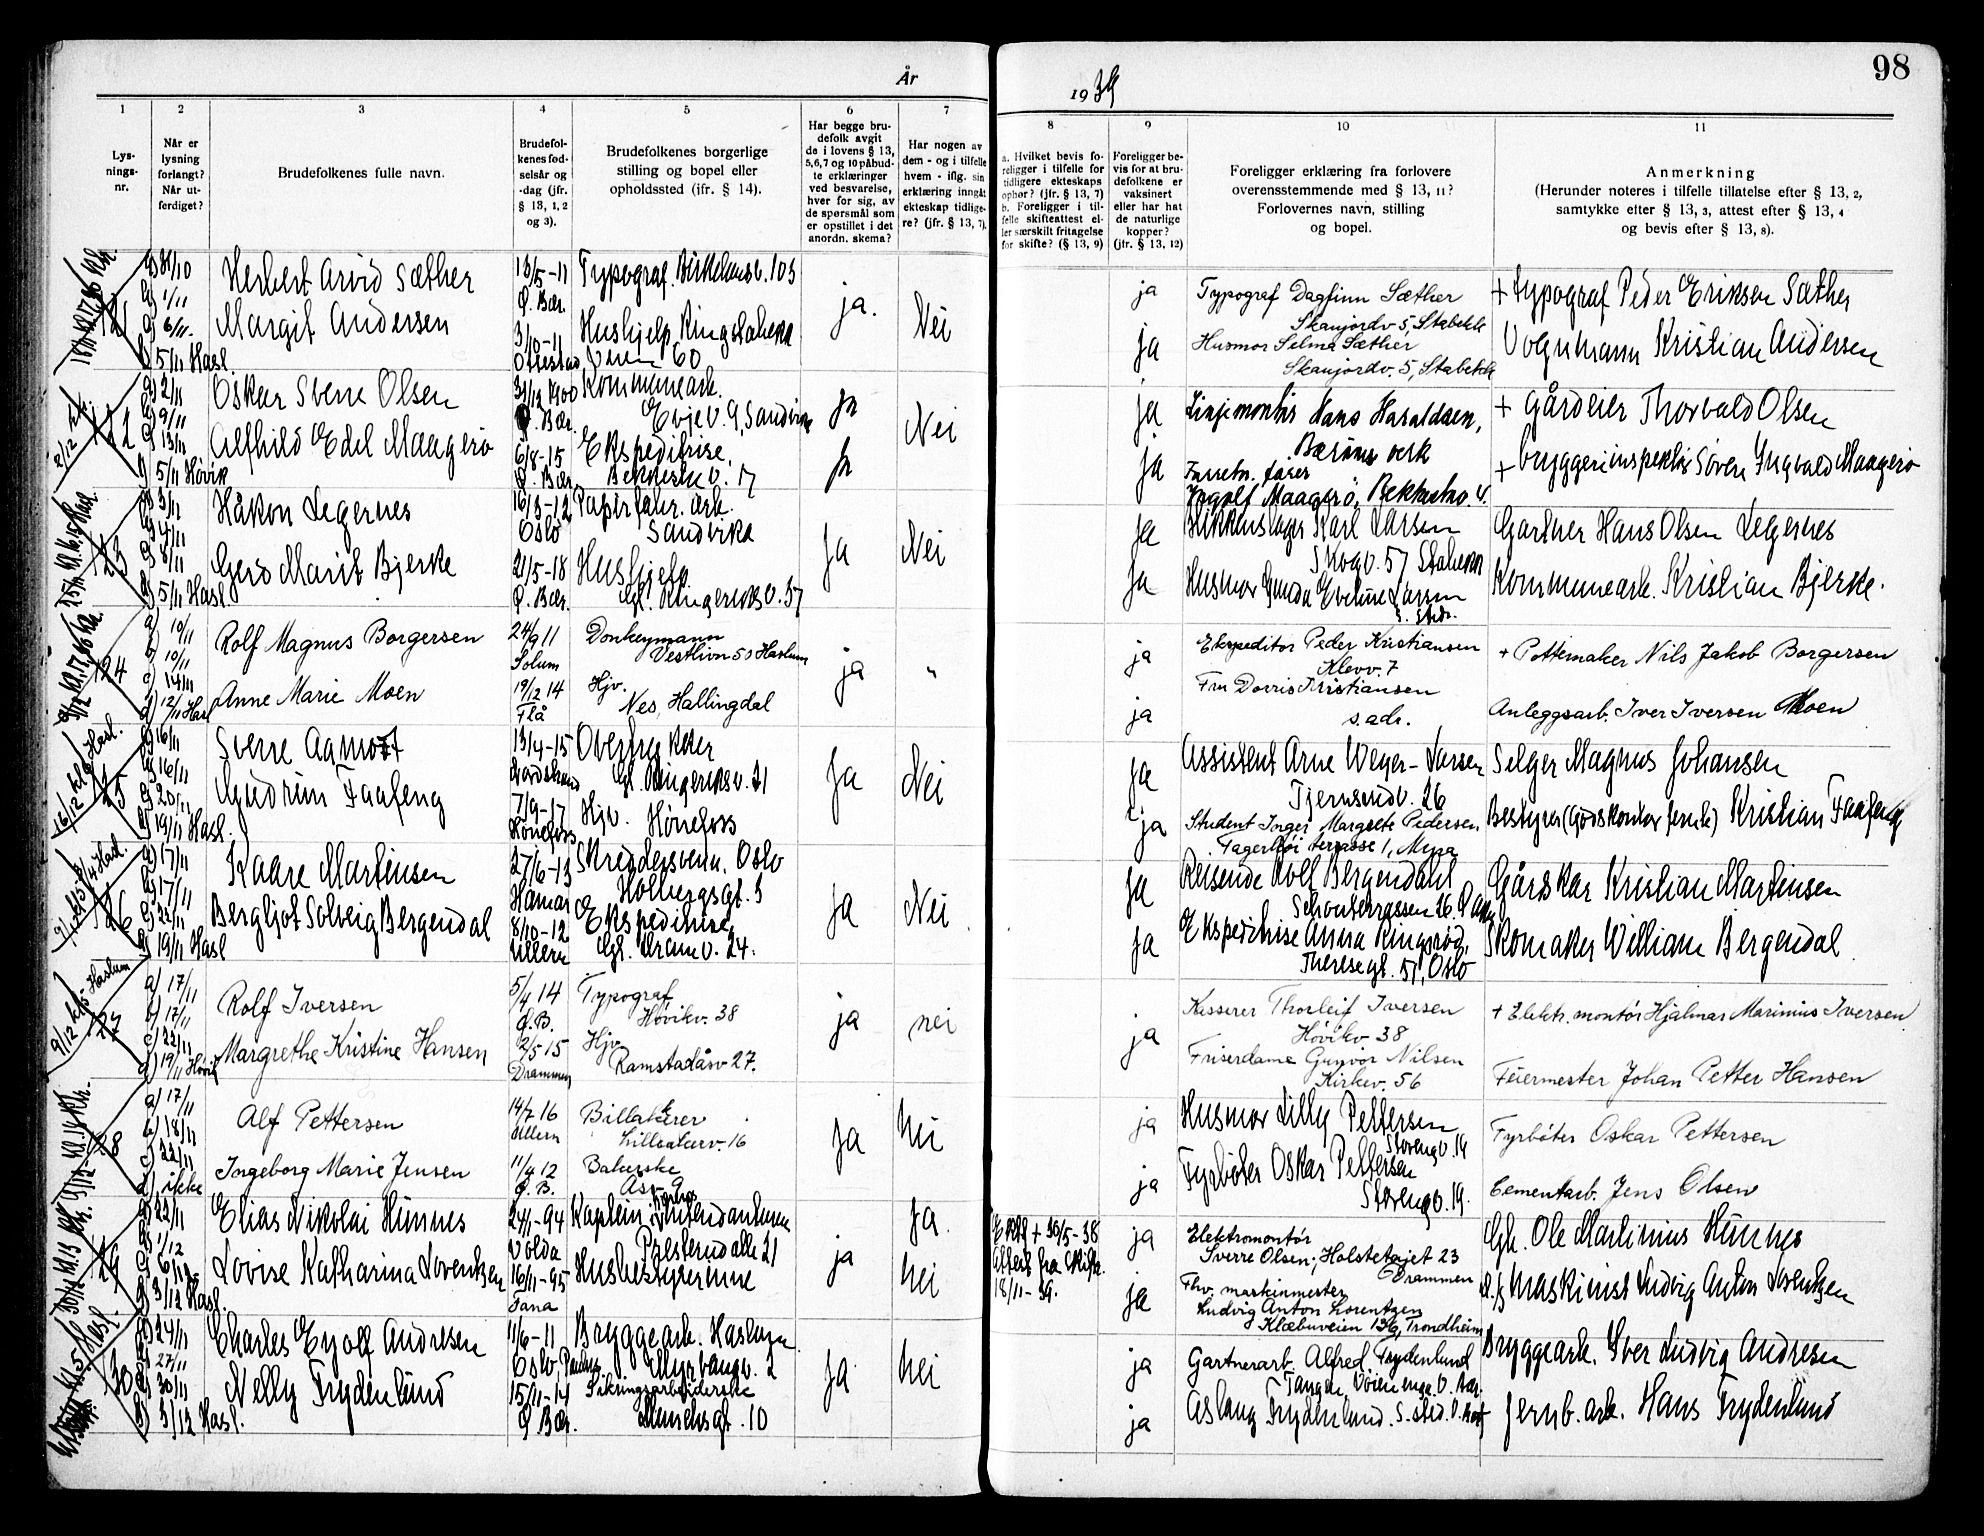 98
År
1939
1 2 3 4 5 6 7
8 9 10 11
Lys-
nings-
nr.
Når er
lysning
forlangt?
Når ut-
ferdiget?
Brudefolkenes fulle navn.
Brudefol-
kenes fød-
selsår og
-dag (jfr.
§ 13, 1, 2
og 3).
Brudefolkenes borgerlige
stilling og bopel eller
opholdssted (ifr. § 14).
Har begge bru-
defolk avgit
de i lovens § 13,
5,6,7 og 10 påbud-
te erklæringer
ved besvarelse,
hver for sig, av
de spørsmål som
er opstillet i det
anordn. skema?
Har nogen av
dem - og i tilfelle
hvem - iflg. sin
erklæring inngåt
ekteskap tidlige-
re? (jfr. § 13, 7).
a. Hvilket bevis fo-
religger i tilfelle for
tidligere ekteskaps
ophør? (jfr. § 13, 7)
b. Foreligger i til-
felle skifteattest el-
ler særskilt fritagelse
for skifte? (§ 13, 9)
Foreligger be-
vis for at bru-
defolkene er
vaksinert
eller har hat
de naturlige
kopper?
(jfr. § 13, 12)
Foreligger erklæring fra forlovere
overensstemmende med § 13, 11?
Forlovernes navn, stilling
og bopel.
Anmerkning
(Herunder noteres i tilfelle tillatelse efter § 13, 2,
samtykke efter § 13, 3, attest efter § 13, 4
og bevis efter § 13, 8).
Herbert Arvid Sæther
13/5-11
Ø. Bær.
Typograf.
ja.
Nei
ja
Typograf Dagfinn Sæther
Skanjordv 5, Stabekk
+ typograf Peder Eriksen Sæther
5/11 Hasl.
Margit Andersen
3/10-11
Ottestad
Hushjelp
60
ja
Husmor Selma Sæther
Skanjordv. 5, Stabekk
Vognmann Kristian Andersen
Oskar Sverre Olsen
31/12 1900
Ø. Bær.
Kommunearb.
Evjev. 9, Sandvika
ja
Nei
ja
Linjemontør Hans Haraldsen,
Bærums verk
+ Gårdeier Thorvald Olsen
5/11 Høvik
Alfhild Edel Maagerø
6/8-15
Ø. Bær.
Ekspeditrise,
17
ja
ja
Ingolf Maagerø,
+ byggeinspektør Søren Ingvald Maagerø
23
Håkon Legernes
16/3-12
Oslo
Papirfabr. arb.
Sandvika
ja
Nei
ja
Blikkenslager Karl Larsen
Skogv. 57 Stabekk
Gartner Hans Olsen Legernes
5/11 Hasl.
Gerd Marit Bjerke
21/5-18
Ø. Bær.
Hushjelp.
Gl. Ringeriksv. 57
ja
Husmor Gunda Eveline Larsen
s. sted.
Kommunearb. Kristian Bjerke.
24
10/11
10/11
14/11
12/11 Hasl
Rolf Magnus Borgersen
24/9 11
Solum
Donkeymann
Vestlivn 50 Haslum
ja
"
ja
Ekspeditør Peder Kristiansen
Klevv. 7
+ Pottemaker Nils Jakob Borgersen
Anne Marie Moen
19/12 14
Flå
Hjv.
Nes, Hallingdal
ja
Fru Dorris Kristiansen
s. adr.
Anleggsarb. Iver Iversen Moen
25
16/11
16/11
20/11
19/11 Hasl.
Sverre Aamodt
13/4-15
Overtrykker
Gl. Ringeriksv. 21
ja
Nei
ja
Assistent Arne Weyer-Larsen
Tjernsrudv. 26
Selger Magnus Johansen
Gudrun Faafeng
7/9-17
Hønefoss
Hjv. Hønefoss
ja
Student Inger Margrete Pedersen
Fagerhøi terrasse 1,
Bestyrer (Godskontor Jernb) Kristian Faafeng
26
17/11
17/11
22/11
19/11 Hasl
Kaare Martinsen
27/6-13
Hamar
Skreddersvenn, Oslo
Holbergsgt. 5
ja
Nei
ja
Reisende Rolf Bergendahl
Gårdskar Kristian Martinsen
Bergljot Solveig Bergendal
8/10-12
Ullern
Ekspeditrise,
Gl. Dramv. 24.
ja
Ekspeditrise Anna Ringsrød,
Theresegt. 51, Oslo
Skomaker William Bergendal
27
17/11
17/11
22/11
19/11 Høvik
Rolf Iversen
5/4 14
Ø. B.
Typograf
Høvikv. 38
ja
nei
ja
Kasserer Thorleif Iversen
Høvikv 38
+ Elektr. montør Hjalmar Marinius Iversen
Margrethe Kristine Hansen
2/5 15
Drammen
Hjv
Ramstadåsv 27.
Friserdame Gunvor Nilsen
Kirkev. 56
Feiermester Johan Petter Hansen
28
17/11
18/11
22/11
ikke
Alf Pettersen
14/7 16
Ullern
Billakerer
Lilleakerv. 16
ja
nei
ja
Husmor Lilly Pettersen
Storengv. 19
Fyrbøter Oskar Pettersen
Ingeborg Marie Jensen
11/9 12
Ø. B.
Bakerske
Asv 9
ja
Fyrbøter Oskar Pettersen
Storengv. 19.
Cementarb. Jens Olsen
29
22/11
1/12
3/12 Hasl.
Elias Nikolai Hunnes
24/1-94
Volda
Kaptein
Presterudalle 21
ja.
+ 30/5-38
Attest fra skifte.
18/11-39.
ja
Elektromontør
Sverre Olsen, Holstetajet 23
Drammen
Gb. Ole Martinius Hunnes
Lovise Katharina Lorentzen
16/11-95
Tana
Husbestyrerinne
ja
nei
ja
Fhv. maskinmester
Ludvig Anton Lorentzen
Klæbuveien 136, Trondheim
maskinist Ludvig Anton Lorentzen
30
24/11
27/11
30/11
3/12 Hasl.
Charles Eyolf Andresen
11/6-11
Oslo,
Bryggearb. Haslum
Myrvangv. 2
ja
nei
ja
Gartnerarb. Alfred Frydenlund
Bryggearb. Iver Ludvig Andresen
Nelly Frydenlund
15/11-14
Ø Bær.
Sikringsarbeiderske
Munchsgt. 10
ja
Aslaug Frydenlund. s. sted.
Jernb. arb. Hans Frydenlund